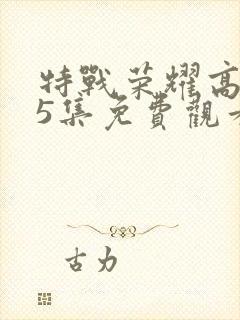 特戰荣耀高
5集免費觀
古力